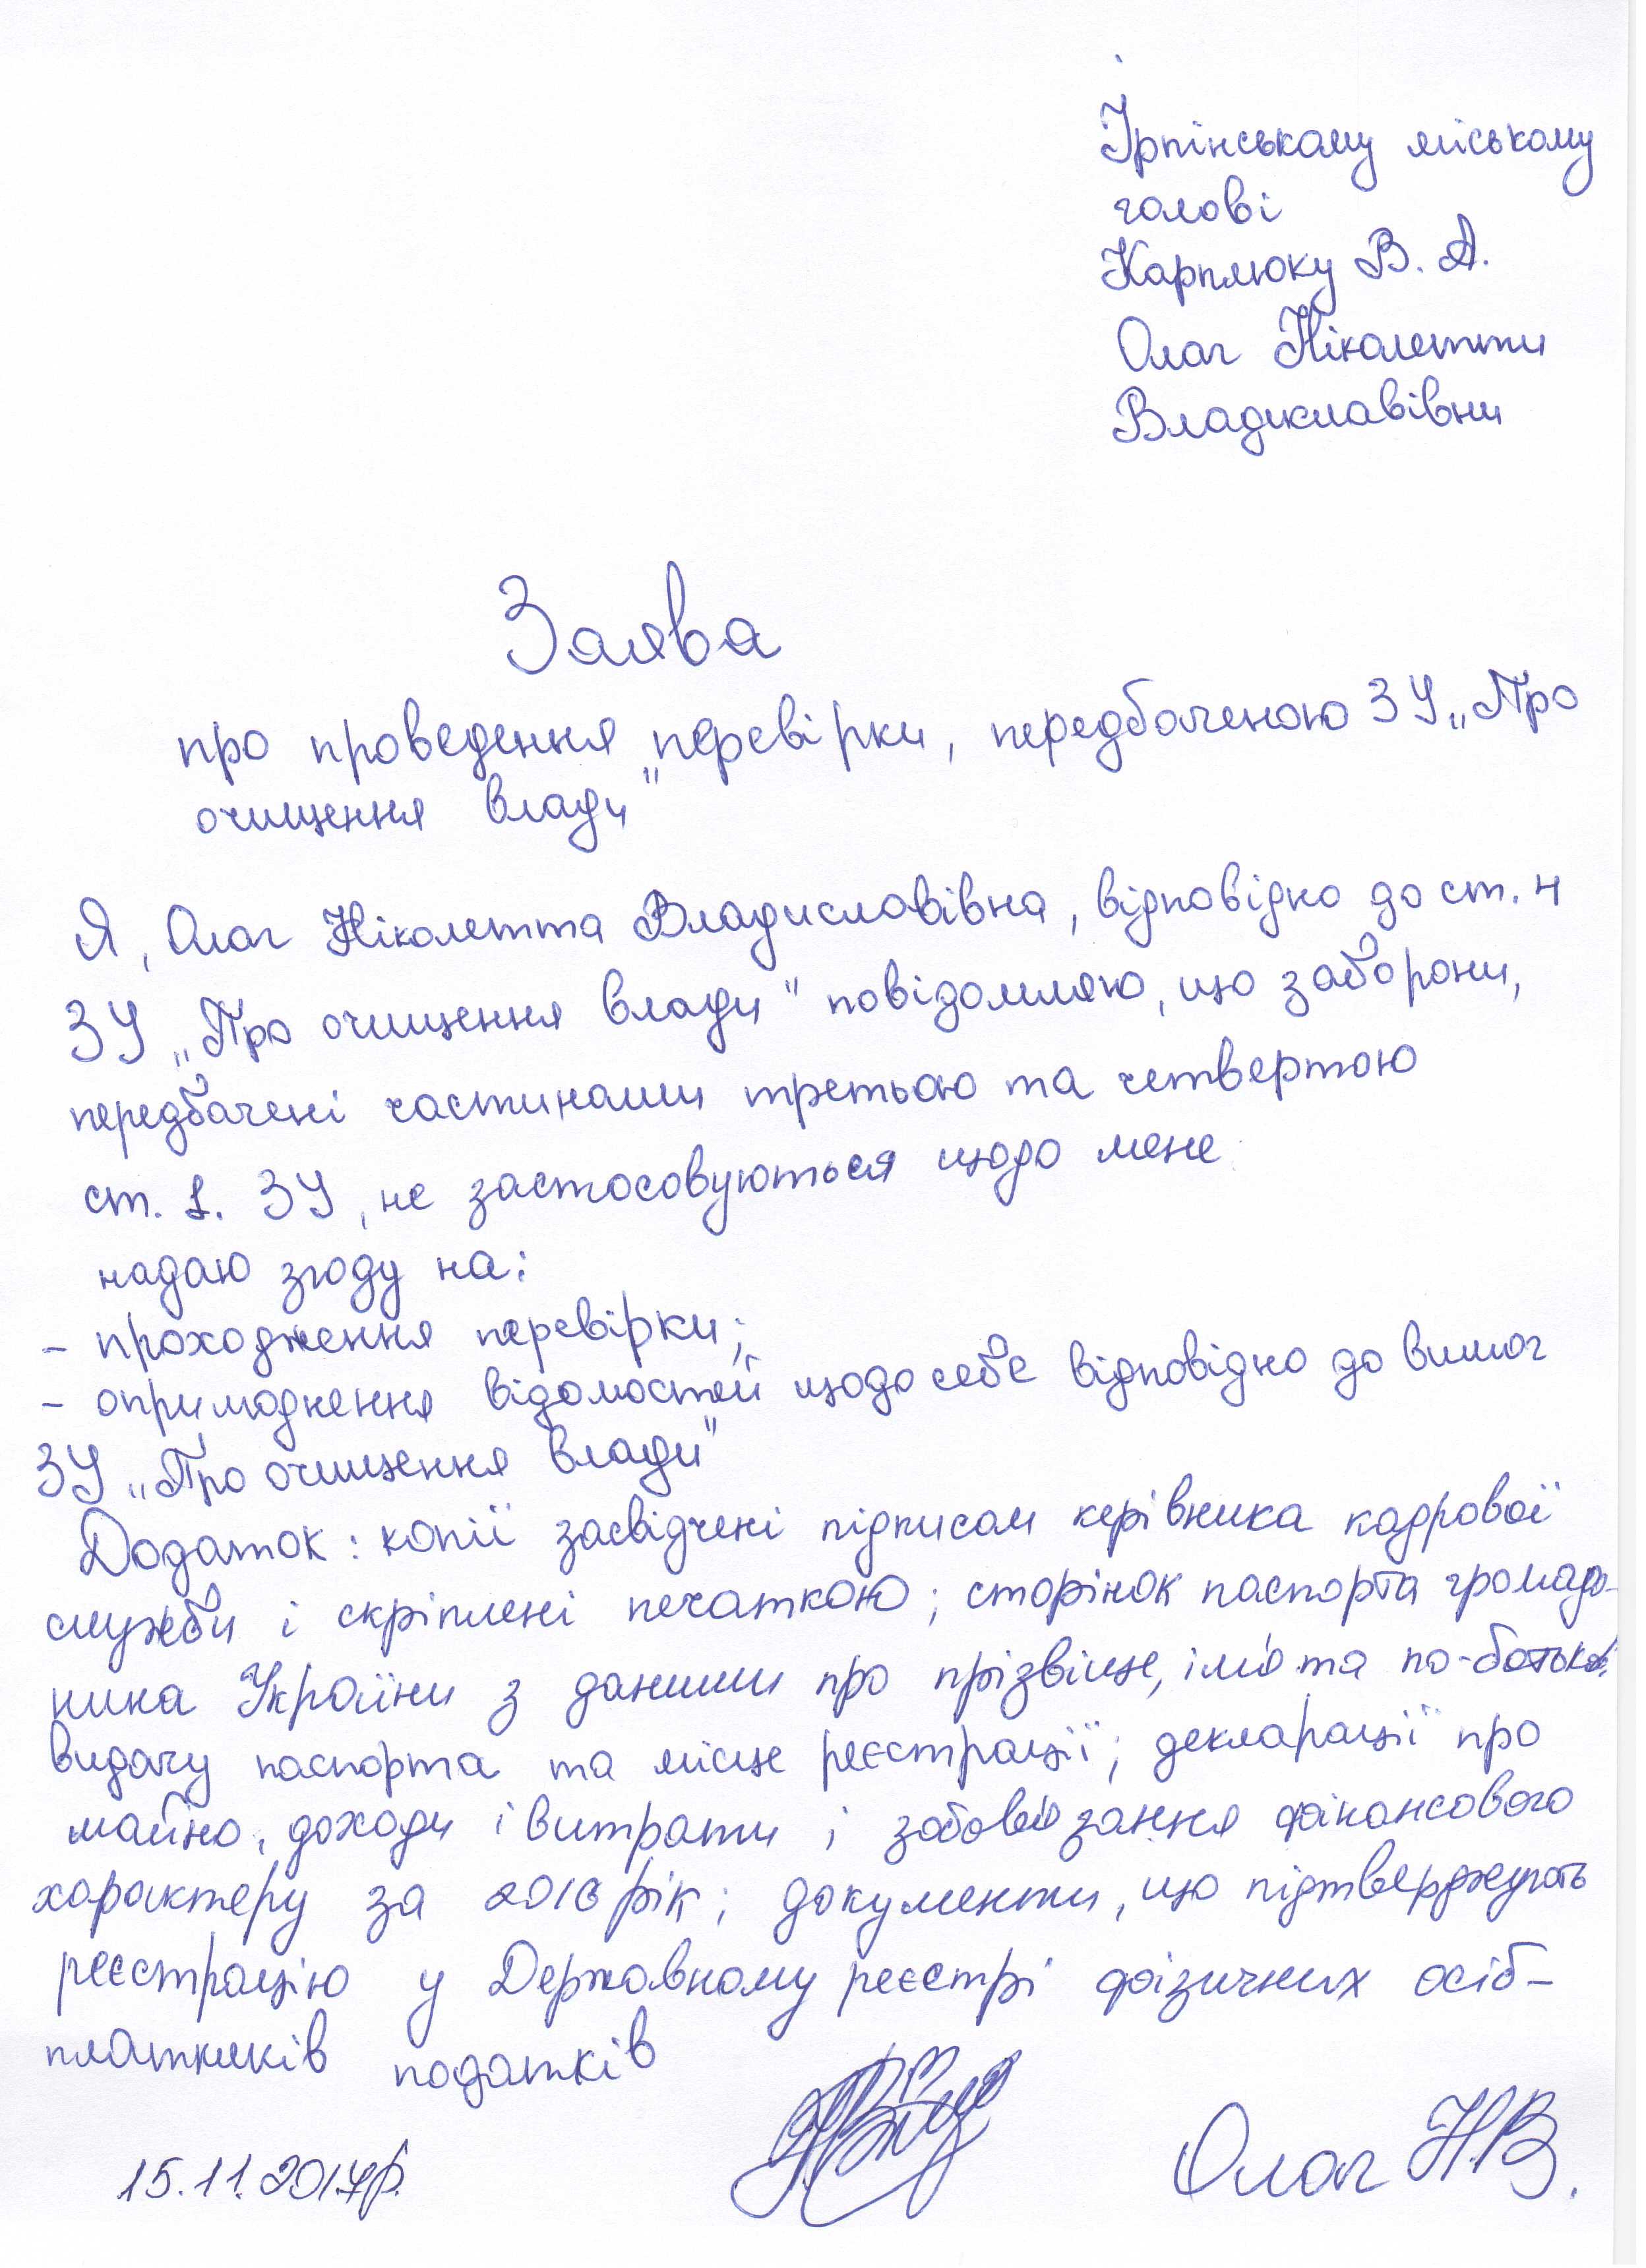 Ірпінському міському
голові
Карплюку В. А.
Олаг Ніколетти
Владиславівни
Заява
про проведення перевірки, передбаченою ЗУ „Про
очищення влади"
Я, Олаг Ніколетта Владиславівна, відповідно до ст. 4
ЗУ „Про очищення влади" повідомляю, що заборони,
передбачені частинами третьою та четвертою
ст. 1. ЗУ, не застосовуються щодо мене
надаю згоду на:
- проходження перевірки;
- оприлюднення відомостей щодо себе відповідно до вимог
ЗУ „Про очищення влади"
Додаток: копії засвідчені підписом керівника кадрової
служби і скріплені печаткою; сторінок паспорта громадя-
нина України з даними про прізвище, ім'я та по-батькові,
видачу паспорта та місце реєстрації; декларації про
майно, доходи і витрати і зобов'язання фінансового
характеру за 2016 рік; документи, що підтверджують
реєстрацію у Державному реєстрі фізичних осіб-
платників податків
15.11.2017р.
Олаг Н.В.